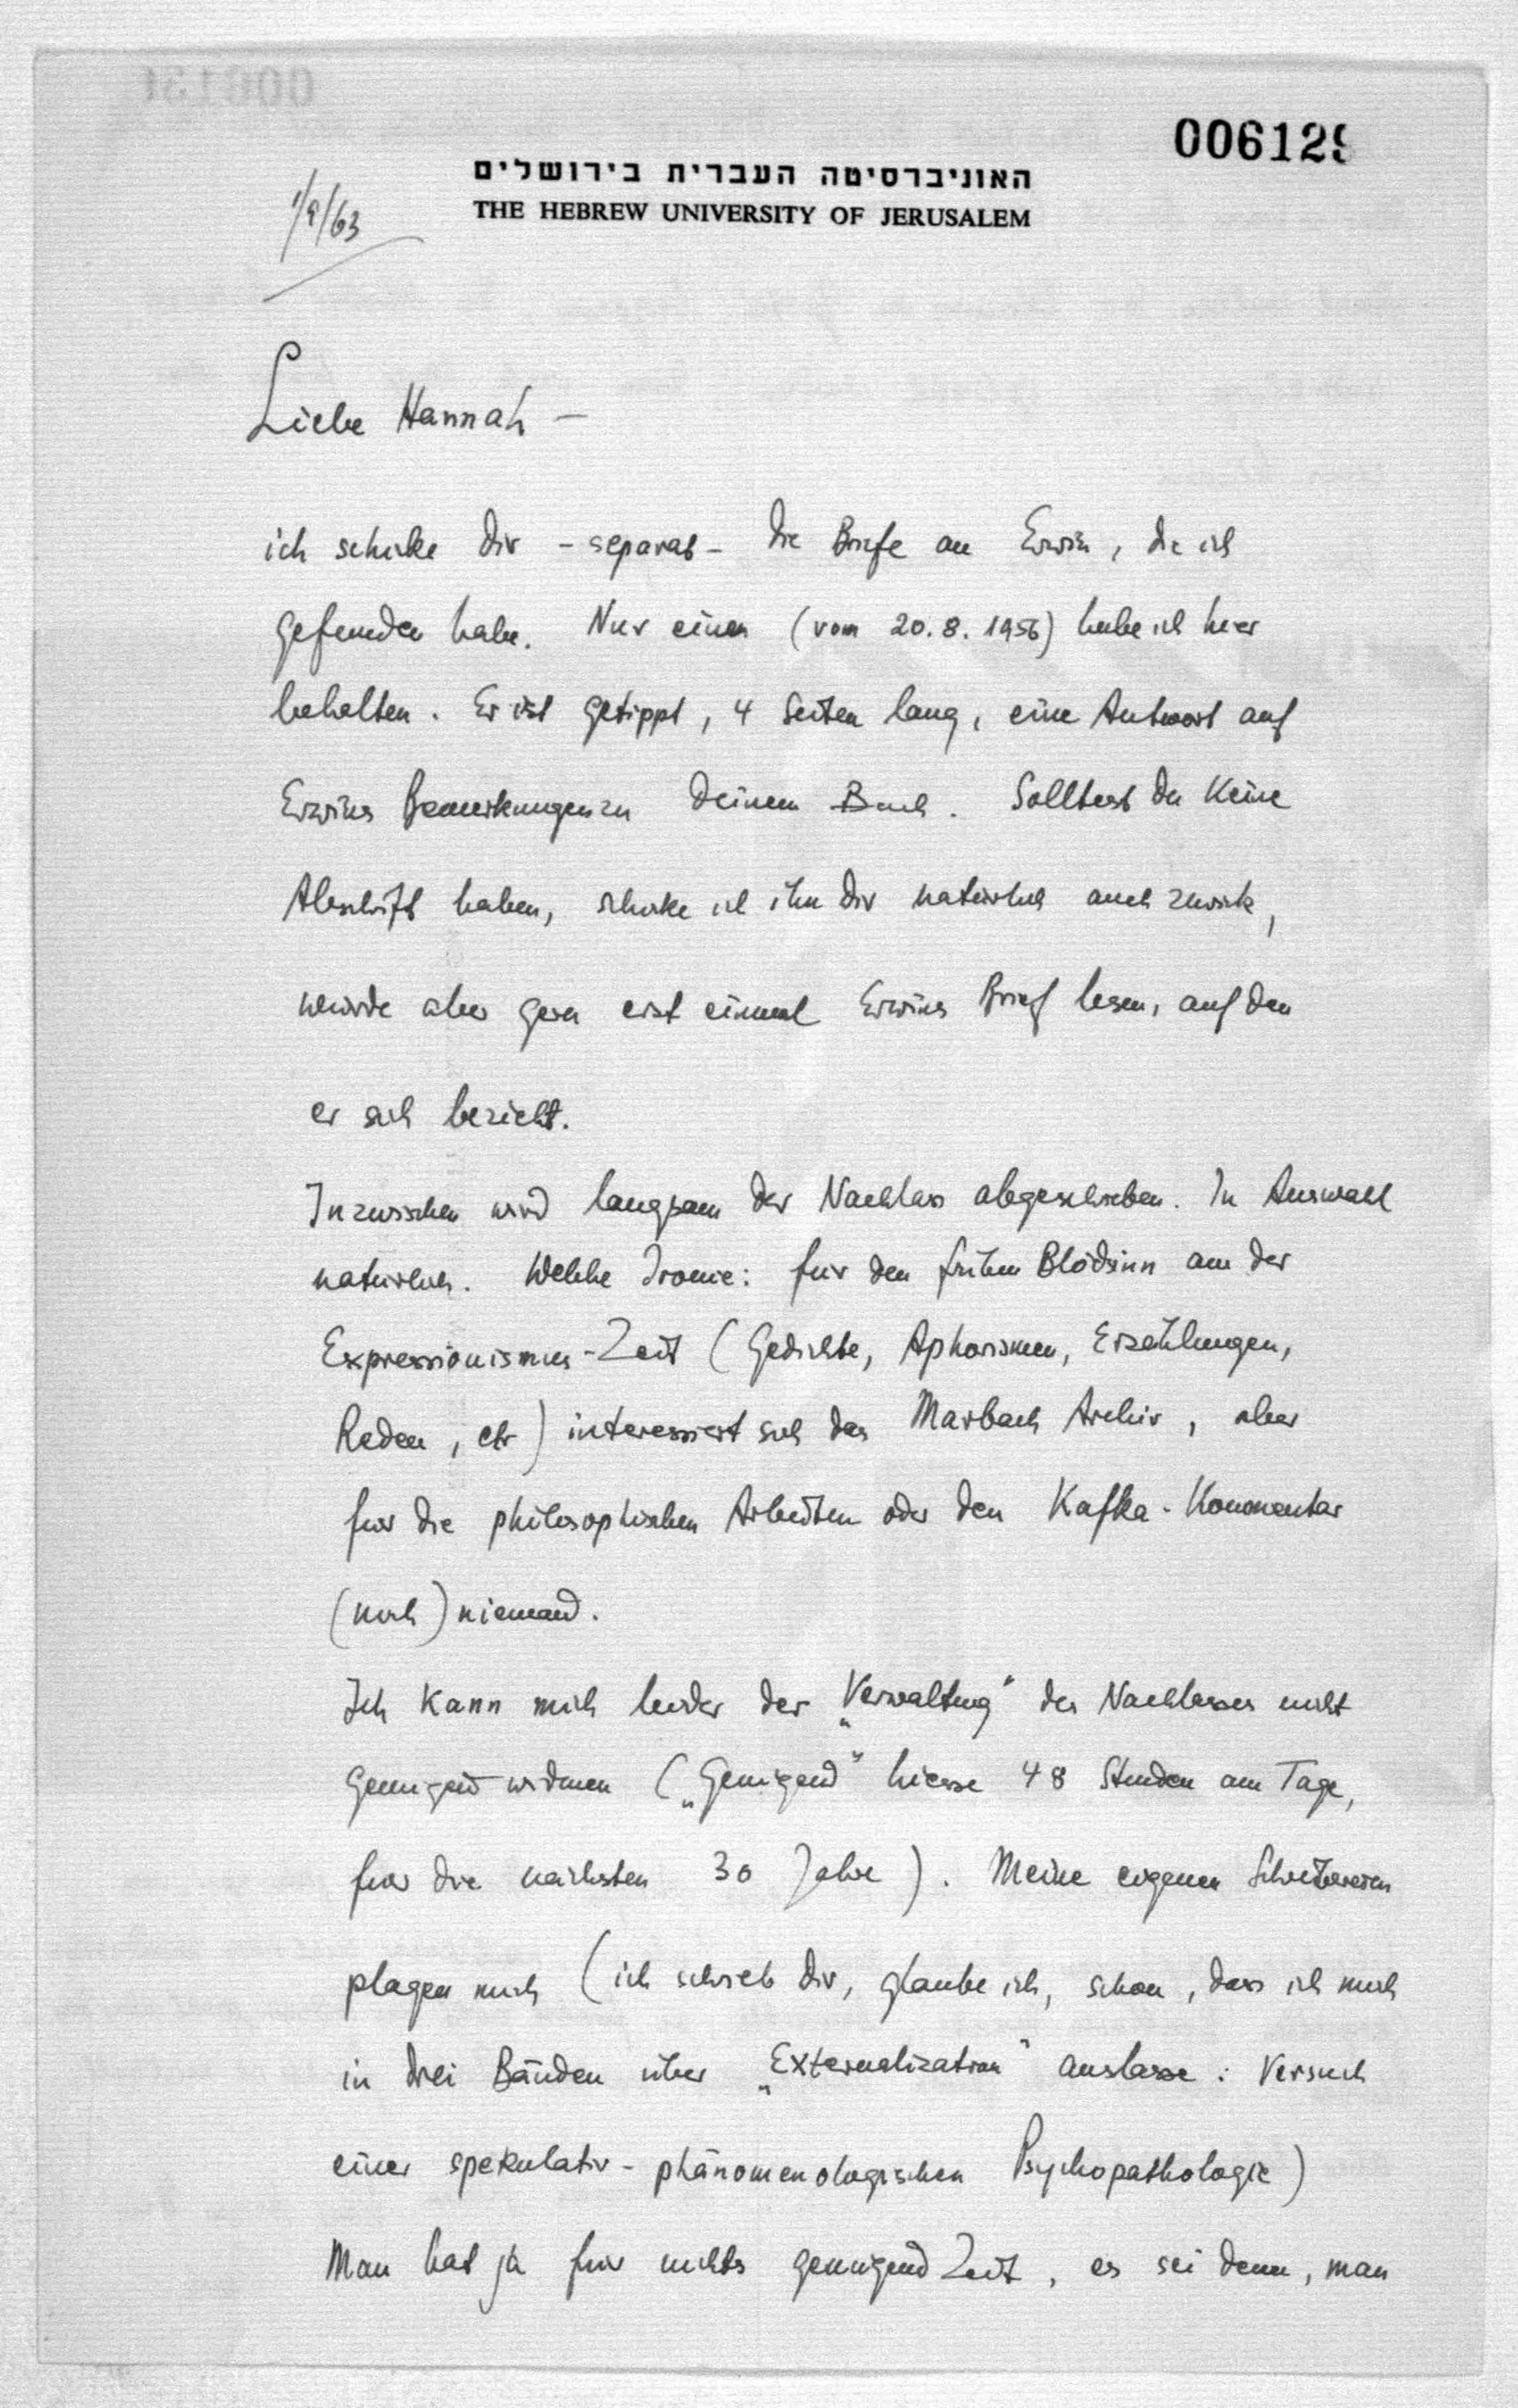 006129
האוניברסיטה העברית בירושלים
THE HEBREW UNIVERSITY OF JERUSALEM
1/9/63
Liebe Hannah –
ich schicke dir – separat – die Briefe an Erwin, die ich
gefunden habe. Nur einen (vom 20.8.1956) habe ich hier
behalten. Er ist getippt, 4 Seiten lang, eine Antwort auf
Erwins Bemerkungen zu deinem Buch. Solltest du keine
Abschrift haben, schicke ich ihn dir natürlich auch zurück,
würde aber gern erst einmal Erwins Brief lesen, auf den
er sich bezieht.
Inzwischen wird langsam der Nachlass abgeschrieben. In Auswahl
natürlich. Welche Ironie: für den frühen Blödsinn aus der
Expressionismus-Zeit (Gedichte, Aphorismen, Erzählungen,
Reden, etc) interessiert sich das Marbach Archiv, aber
für die philosophischen Arbeiten oder den Kafka-Kommentar
(noch) niemand.
Ich kann mich leider der „Verwaltung“ des Nachlasses nicht
genügend widmen („Genügend“ hiesse 48 Stunden am Tage,
für die nächsten 30 Jahre). Meine eigenen Schreibereien
plagen mich (ich schrieb dir, glaube ich, schon, dass ich mich
in drei Bänden über „Externalization“ auslasse: Versuch
einer spekulativ-phänomenologischen Psychopathologie)
Man hat ja für nichts genügend Zeit, es sei denn, man